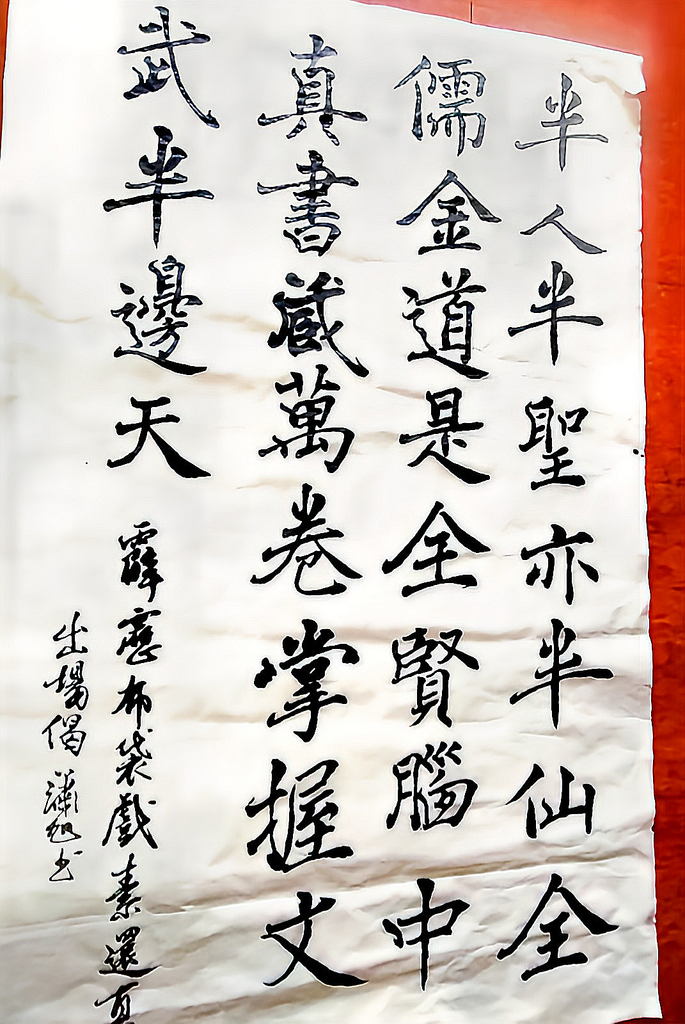 半人半聖亦半仙全
儒金道是全賢腦中
真書藏萬卷掌握文
武半邊天
霹靂布袋戲素還真
出場偈 瀟旭书